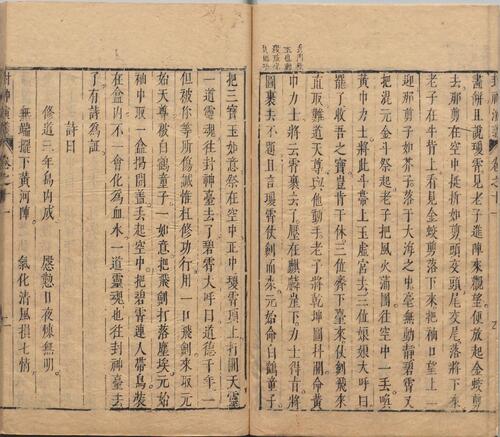 畵解且說瓊霄見老子進陣來觀望便放起金蛟剪
去那剪在空中挺折如剪頭交頭尾交尾落將下來
老子在牛背上有見金蛟剪落下來把袖口望上一
迎那剪子如芥子落于大海之中毫無動靜碧霄又
把混元金斗祭起老子把風火蒲團往空中一丟喚
黃巾力士將此斗帶上玉虛宮去三位娘娘大呼曰
罷了收吾之寶豈肯干休三位齊下臺來仗劍飛來
直取難道天尊與他動手老子將乾坤圖抖開命黃
巾力士將云霄裹去了壓在麒麟崖下力士得旨將
圖裹去不題且言瓊霄仗劍而來元始命白鶴童子
把三寶玉如意祭在空中正中瓊霄頂上打開天靈
一道靈魂往封神臺去了碧霄大呼曰道德千年一
但被你等所傷誠爲枉修功行用一口飛劍來取元
始天尊被白鶴童子一如意把飛劍打落塵埃元始
袖中取一盒揭開蓋丟起空中把碧霄連人帶鳥裝
在盒內不一會化爲血水一道靈魂也往封神臺去
了有詩爲証
詩曰
修道三年爲內戚　慇懃日夜煉無明
無端擺下黃河陣　氣化清風損七情
封神演義　卷之十